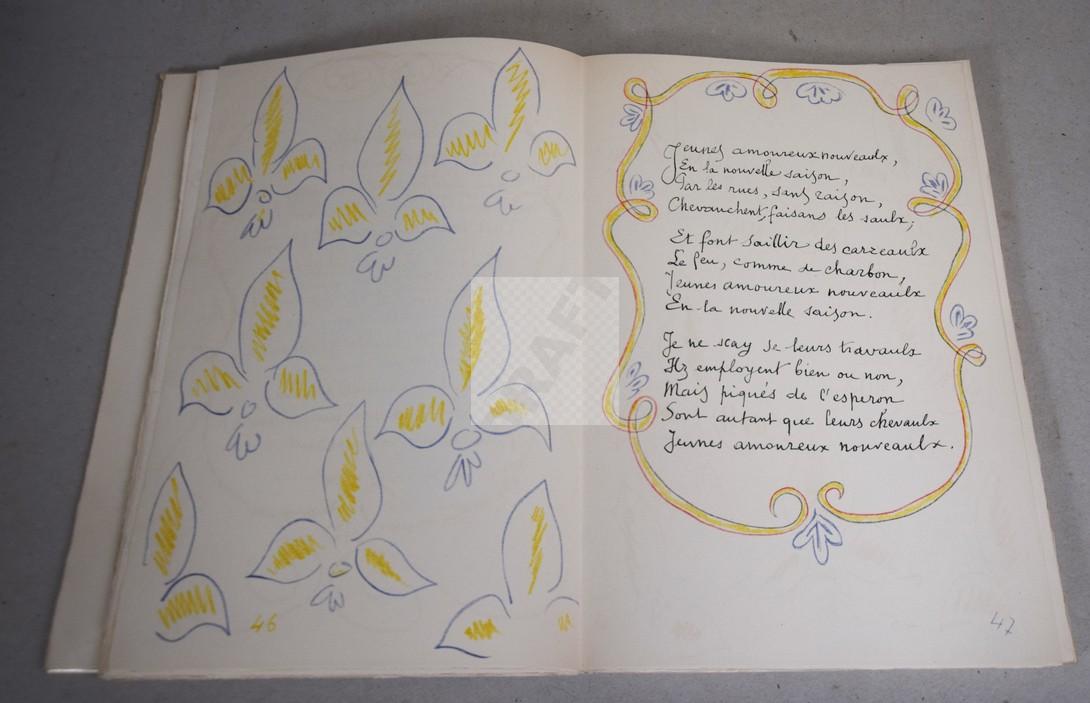 46
Jeunes amoureux nouveaulx,
En la nouvelle saison,
Par les rues, sans raison,
Chevauchent, faisans les saulx;
Et font saillir des carreaulx
Le feu, comme de charbon,
Jeunes amoureux nouveaulx
En la nouvelle saison.
Je ne scay se leurs travaulx
Ilz employent bien ou non,
Mais piqués de l'esperon
Sont autant que leurs chevaulx
Jeunes amoureux nouveaulx.
47
DRAFT